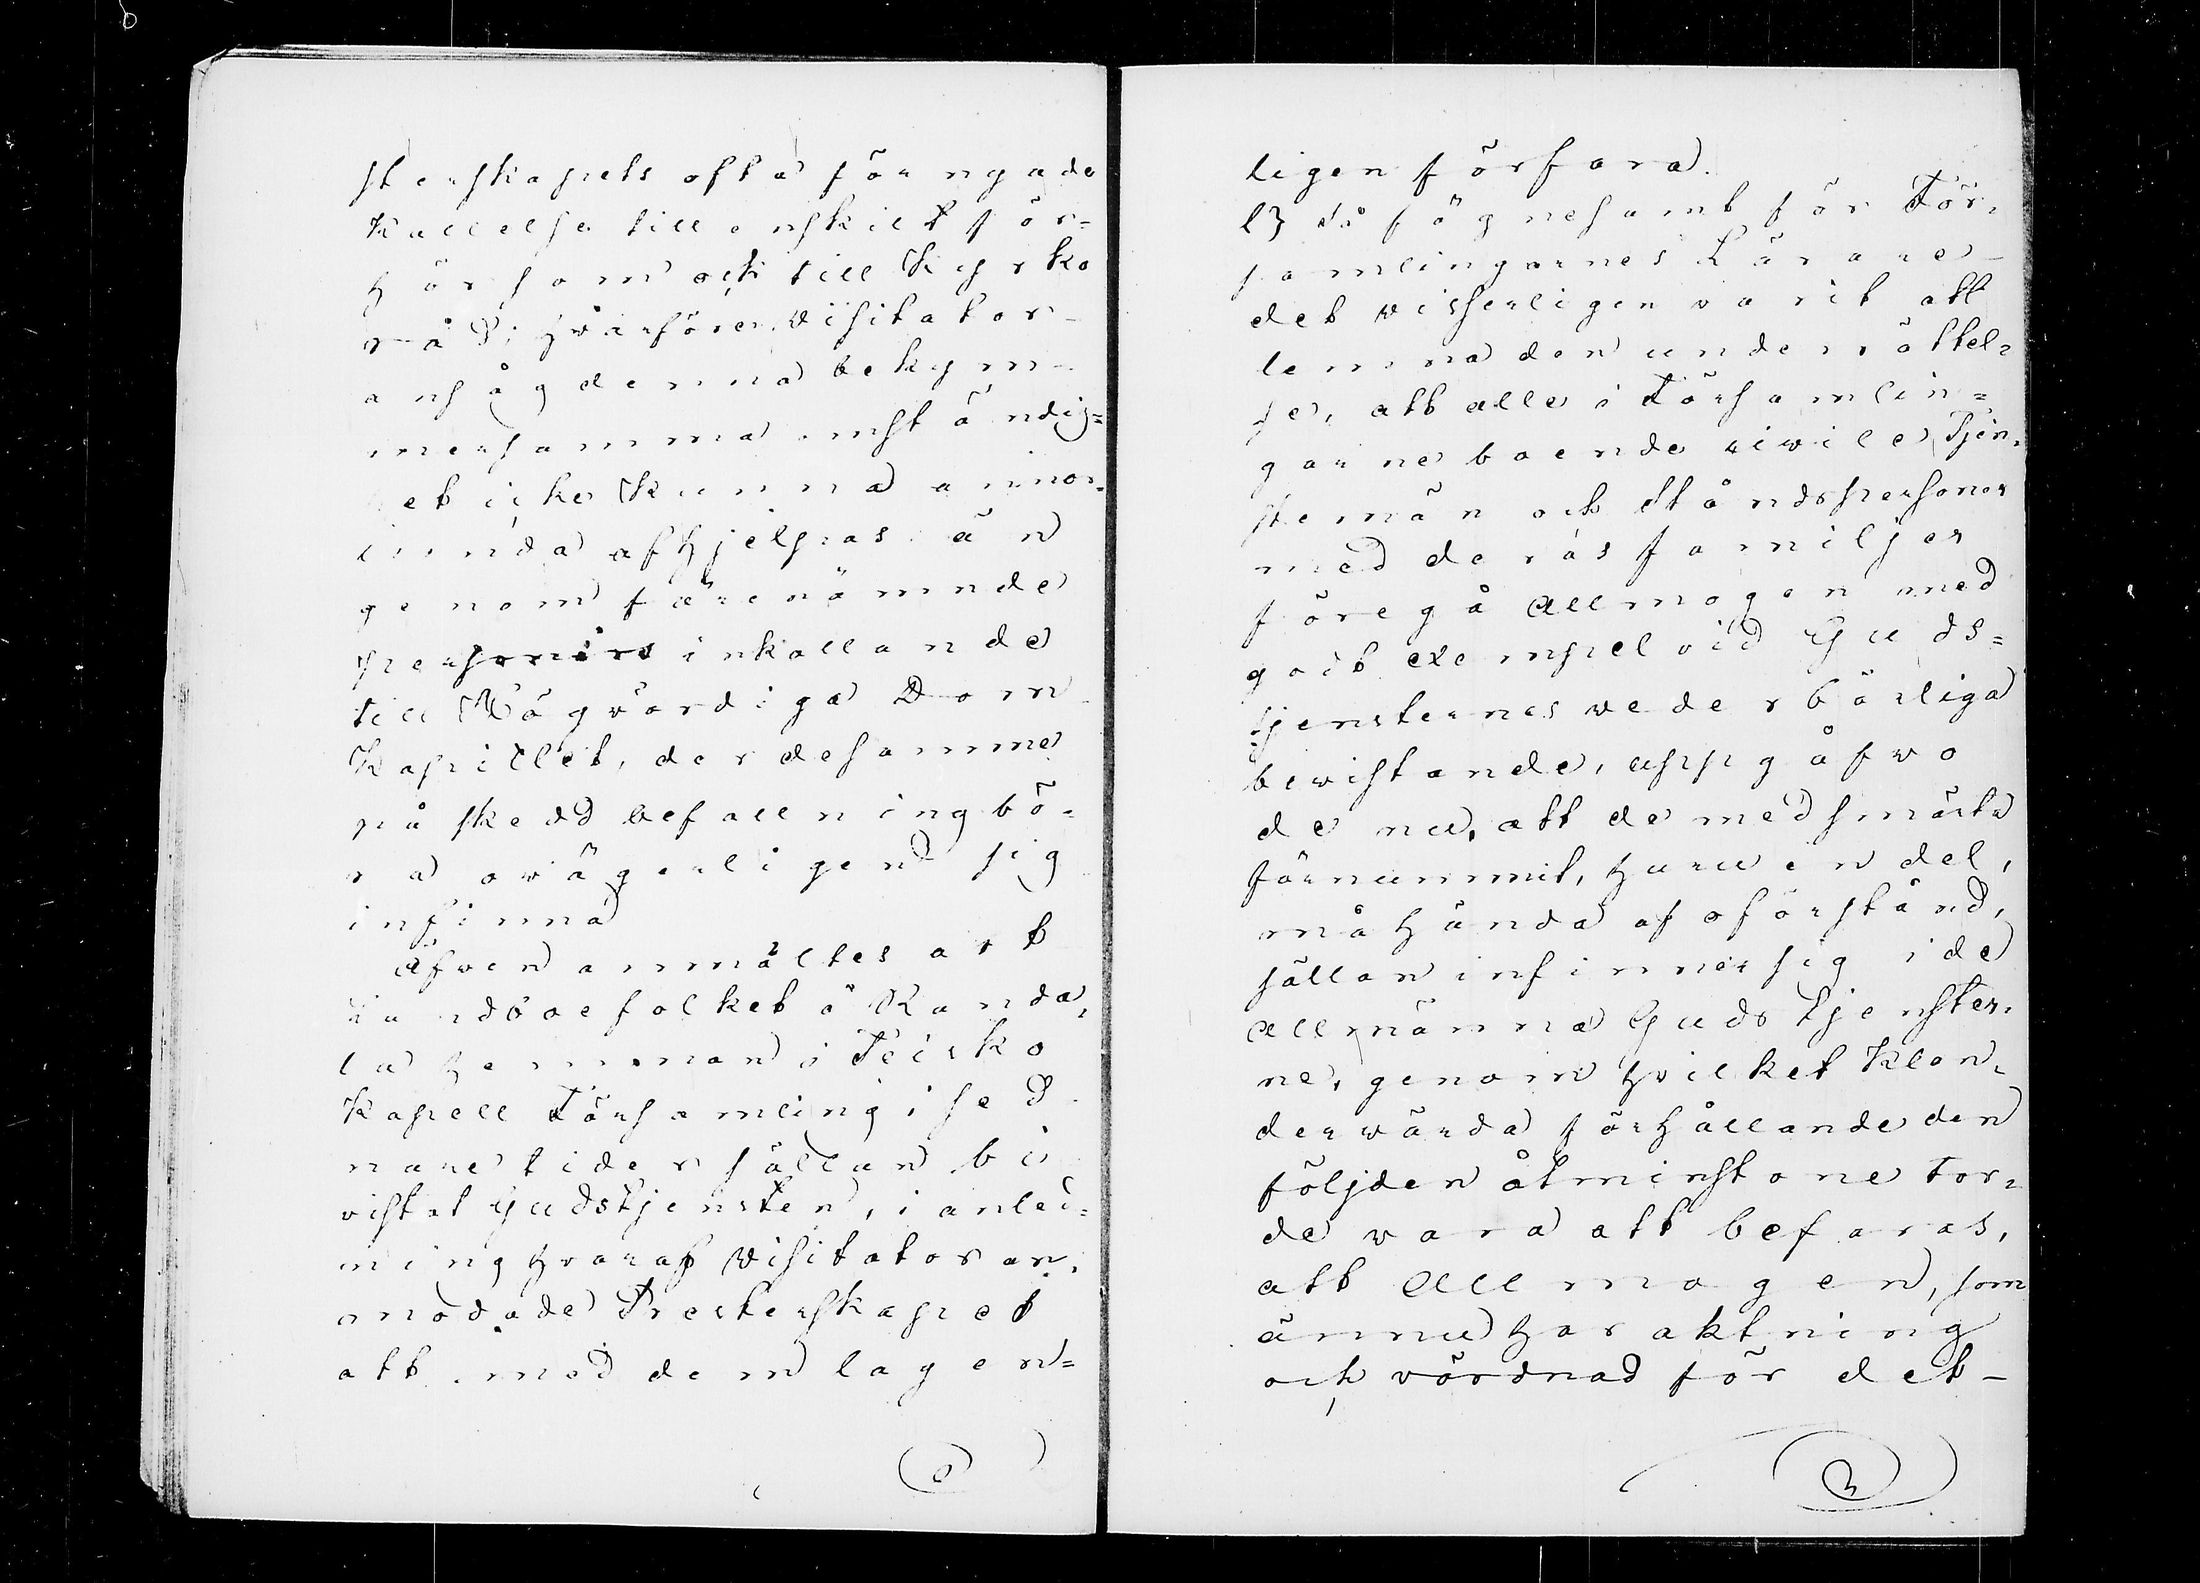 sterskapets ofta förnyade
Kallelse till enskilt för=
hör som och till Kyrko
råd; hvarföre Visitator
ansåg denna bekym-
mersamma omständig=
et icke kunna annor-
lunda afhjelpas än
genom förenämnde
persnrs inkallande
till Högvördiga Dom
Kapitlet, der desamme
på skedd befallning bö-
ra ovägerligen sig
infinna
Äfven anmältes att
Landboefolket å Kanda,
la hemman i Teisko
Kapell Församling i sed
nare tider sällan bi
vistat Gudstjensten, i anled=
ning hvaraf Visitator an,
modade Presterskapet
att med dem lagen=
ligen förfara.
l} Så fögnesamt för För,
samlingarnes Lärare
det visserligen varit att
lemna den underrättel=
se, att alle i Församlin=
garne boende civile Tjen,
stemän och Ståndspersoner
med deras familjer
föregå Allmogen med
godt exempel vid Guds=
tjensternes vederbörliga
bevistande, uppgåfvo
de nu, att de med smärta
förnummit, huru en del,
måhända af oförstånd,
sällan infinner sig i de
Allmänna Gudstjenster,
ne, genom hvilket klan,
dervärda förhållande den
följden åtminstone tor=
de vara att befaras,
att Allmogen, som
ännu har aktning
och vördnad för det-